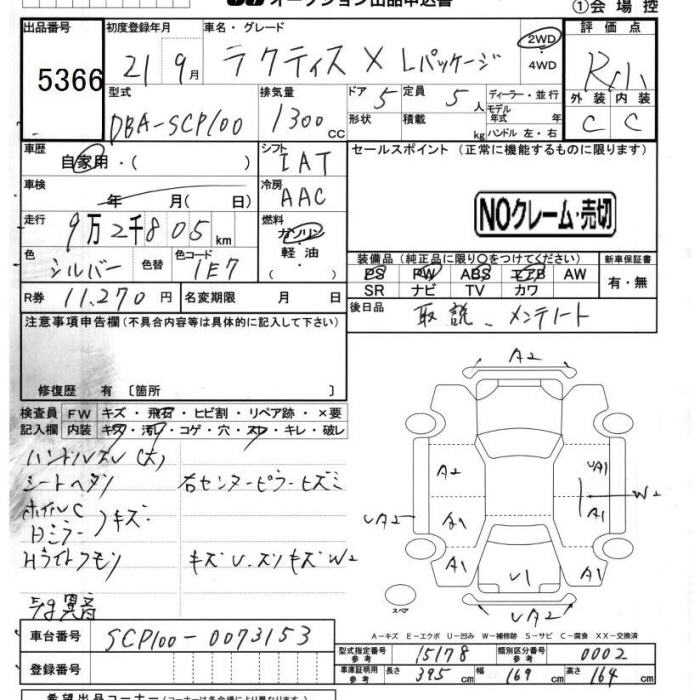 オークション出品申込書
①会場控
出品番号 5366
初度登録年月 21 9月
車名・グレード ラクティス X Lパッケージ
2WD
4WD
評価点
外装 内装
C C
型式 DBA-SCP100
排気量 1300 cc
ドア 5 定員 5人
形状 積載 kg
ディーラー・並行
モデル年式 年
ハンドル 左・右
車歴 自家用・( )
シフト IAT
セールスポイント (正常に機能するものに限ります)
車検 年 月( 日)
冷房 AAC
NOクレーム・売切
走行 9万2千805 km
燃料 ガソリン
軽油
・( )
色 シルバー 色替
色コード 1E7
装備品 (純正品に限り○をつけてください) 新車保証書
PS PW ABS エアB AW
SR ナビ TV カワ
有・無
R券 11,270円 名変期限 月 日
後日品 取説、メンテノート
注意事項申告欄(不具合内容等は具体的に記入して下さい)
修復歴 有 〔箇所 〕
検査員 FW キズ・飛石・ヒビ割・リペア跡・×要
記入欄 内装 キズ・汚レ・コゲ・穴・スレ・キレ・破レ
ハンドルスレ(大)
シートヘタリ 右センターピラーヒズミ
ホイルC
Dミラー 〉キズ
Hライトクモリ キズU.スリキズ W2
異音
A2
A2
UA1
A1
A1
W2
UA2
A1
A1
U1
UA2
スペア
A-キズ E-エクボ U-凹み W-補修跡 S-サビ C-腐食 XX-交換済
車台番号 SCP100-0073153
型式指定番号 参考 15178 類別区分番号 参考 0002
登録番号
車庫証明用 参考 長さ 395cm 幅 169cm 高さ 164cm
希望出品コーナー(コーナーは各会場により異なります)